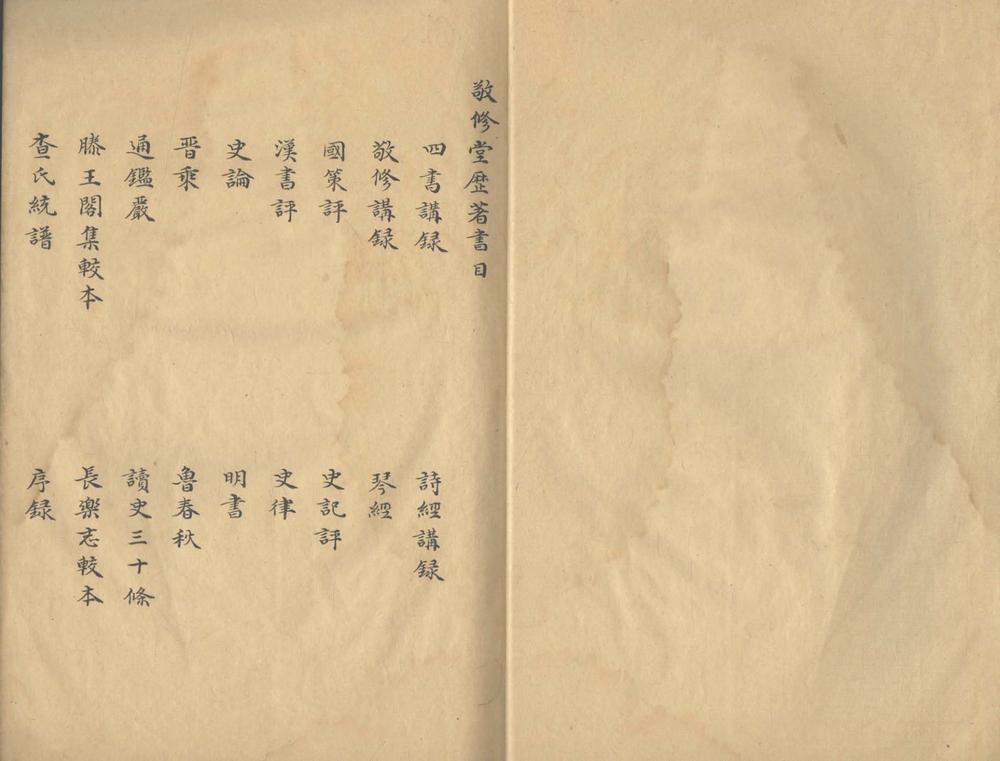 敬修堂歷著書目
四書講録
詩經講録
敬修講録
琴經
國策評
史記評
漢書評
史律
史論
明書
晋乘
魯春秋
通鑑嚴
讀史三十條
滕王閣集較本
長樂志較本
查氏統譜
序録